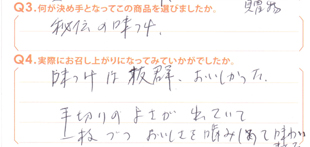 Q3.何が決め手となってこの商品を選びましたか。
秘伝の味つけ。
Q4.実際にお召し上がりになってみていかがでしたか。
味つけは抜群、おいしかった。
手切りのよさが出ていて
一枚づつおいしさを噛みしめて味わい